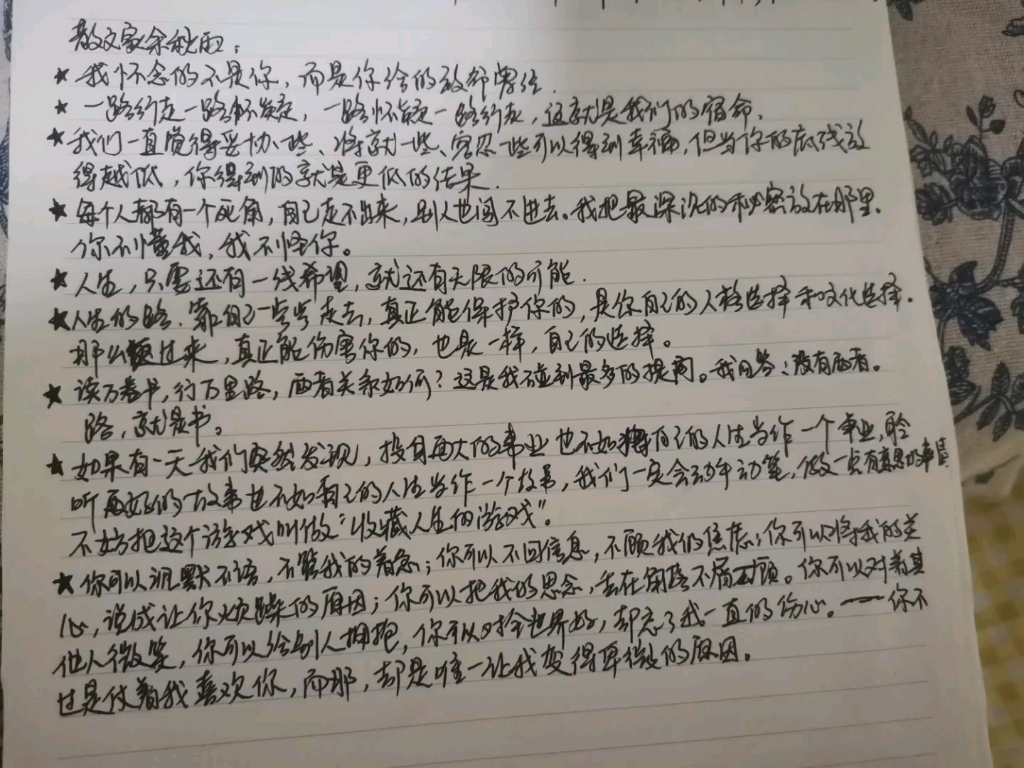 散文家余秋雨：
★ 我怀念的不是你，而是你给的致命曾经.
★ 一路约定一路怀疑，一路怀疑一路约定，这就是我们的宿命.
★ 我们一直觉得妥协一些、将就一些、容忍一些可以得到幸福，但当你的底线放
得越低，你得到的就是更低的结果.
★ 每个人都有一个死角，自己走不出来，别人也闯不进去。我把最深沉的秘密放在那里.
你不懂我，我不怪你。
★ 人生，只要还有一线希望，就还有无限的可能.
★ 人生的路.靠自己一步步走去，真正能保护你的，是你自己的人格选择和文化选择.
那么反过来，真正能伤害你的，也是一样，自己的选择。
★ 读万卷书，行万里路，两者关系如何？这是我碰到最多的提问。我回答：没有两者。
路，就是书。
★ 如果有一天我们突然发现，投身再大的事业也不如把自己的人生当作一个事业，聆
听再好的故事也不如看自己的人生当作一个故事，我们一定会动手动笔，做一点有意思的事情
不妨把这个游戏叫做“收藏人生的游戏”。
★ 你可以沉默不语，不管我的着急；你可以不回信息，不顾我的焦虑；你可以将我的关
心，说成让你烦躁的原因；你可以把我的思念，丢在角落不屑一顾。你可以对着其
他人微笑，你可以给别人拥抱，你可以对全世界好，却忘了我一直的伤心。——你不
过是仗着我喜欢你，而那，却是唯一让我变得卑微的原因。